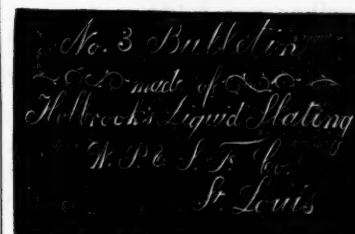 No. 3 Bulletin
made of
Holbrook's Liquid Slating
St. Louis